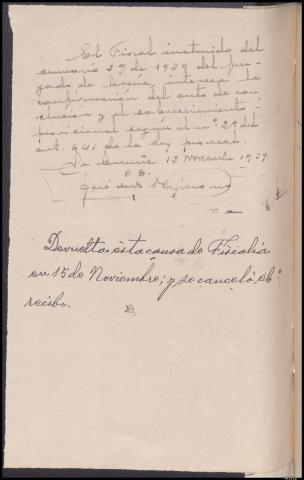 El Fiscal instruido del
sumario 39 de 1939 del juz-
gado de interesa la
confirmación del auto de con-
clusión y el sobreseimiento
provisional según el nº 2º del
art. 641 de la ley procesal.
La Coruña 13 Noviembre 1939
P. D.
José Luis
Devuelta ésta causa de Fiscalía
en 15 de Noviembre; y se canceló el
recibo.